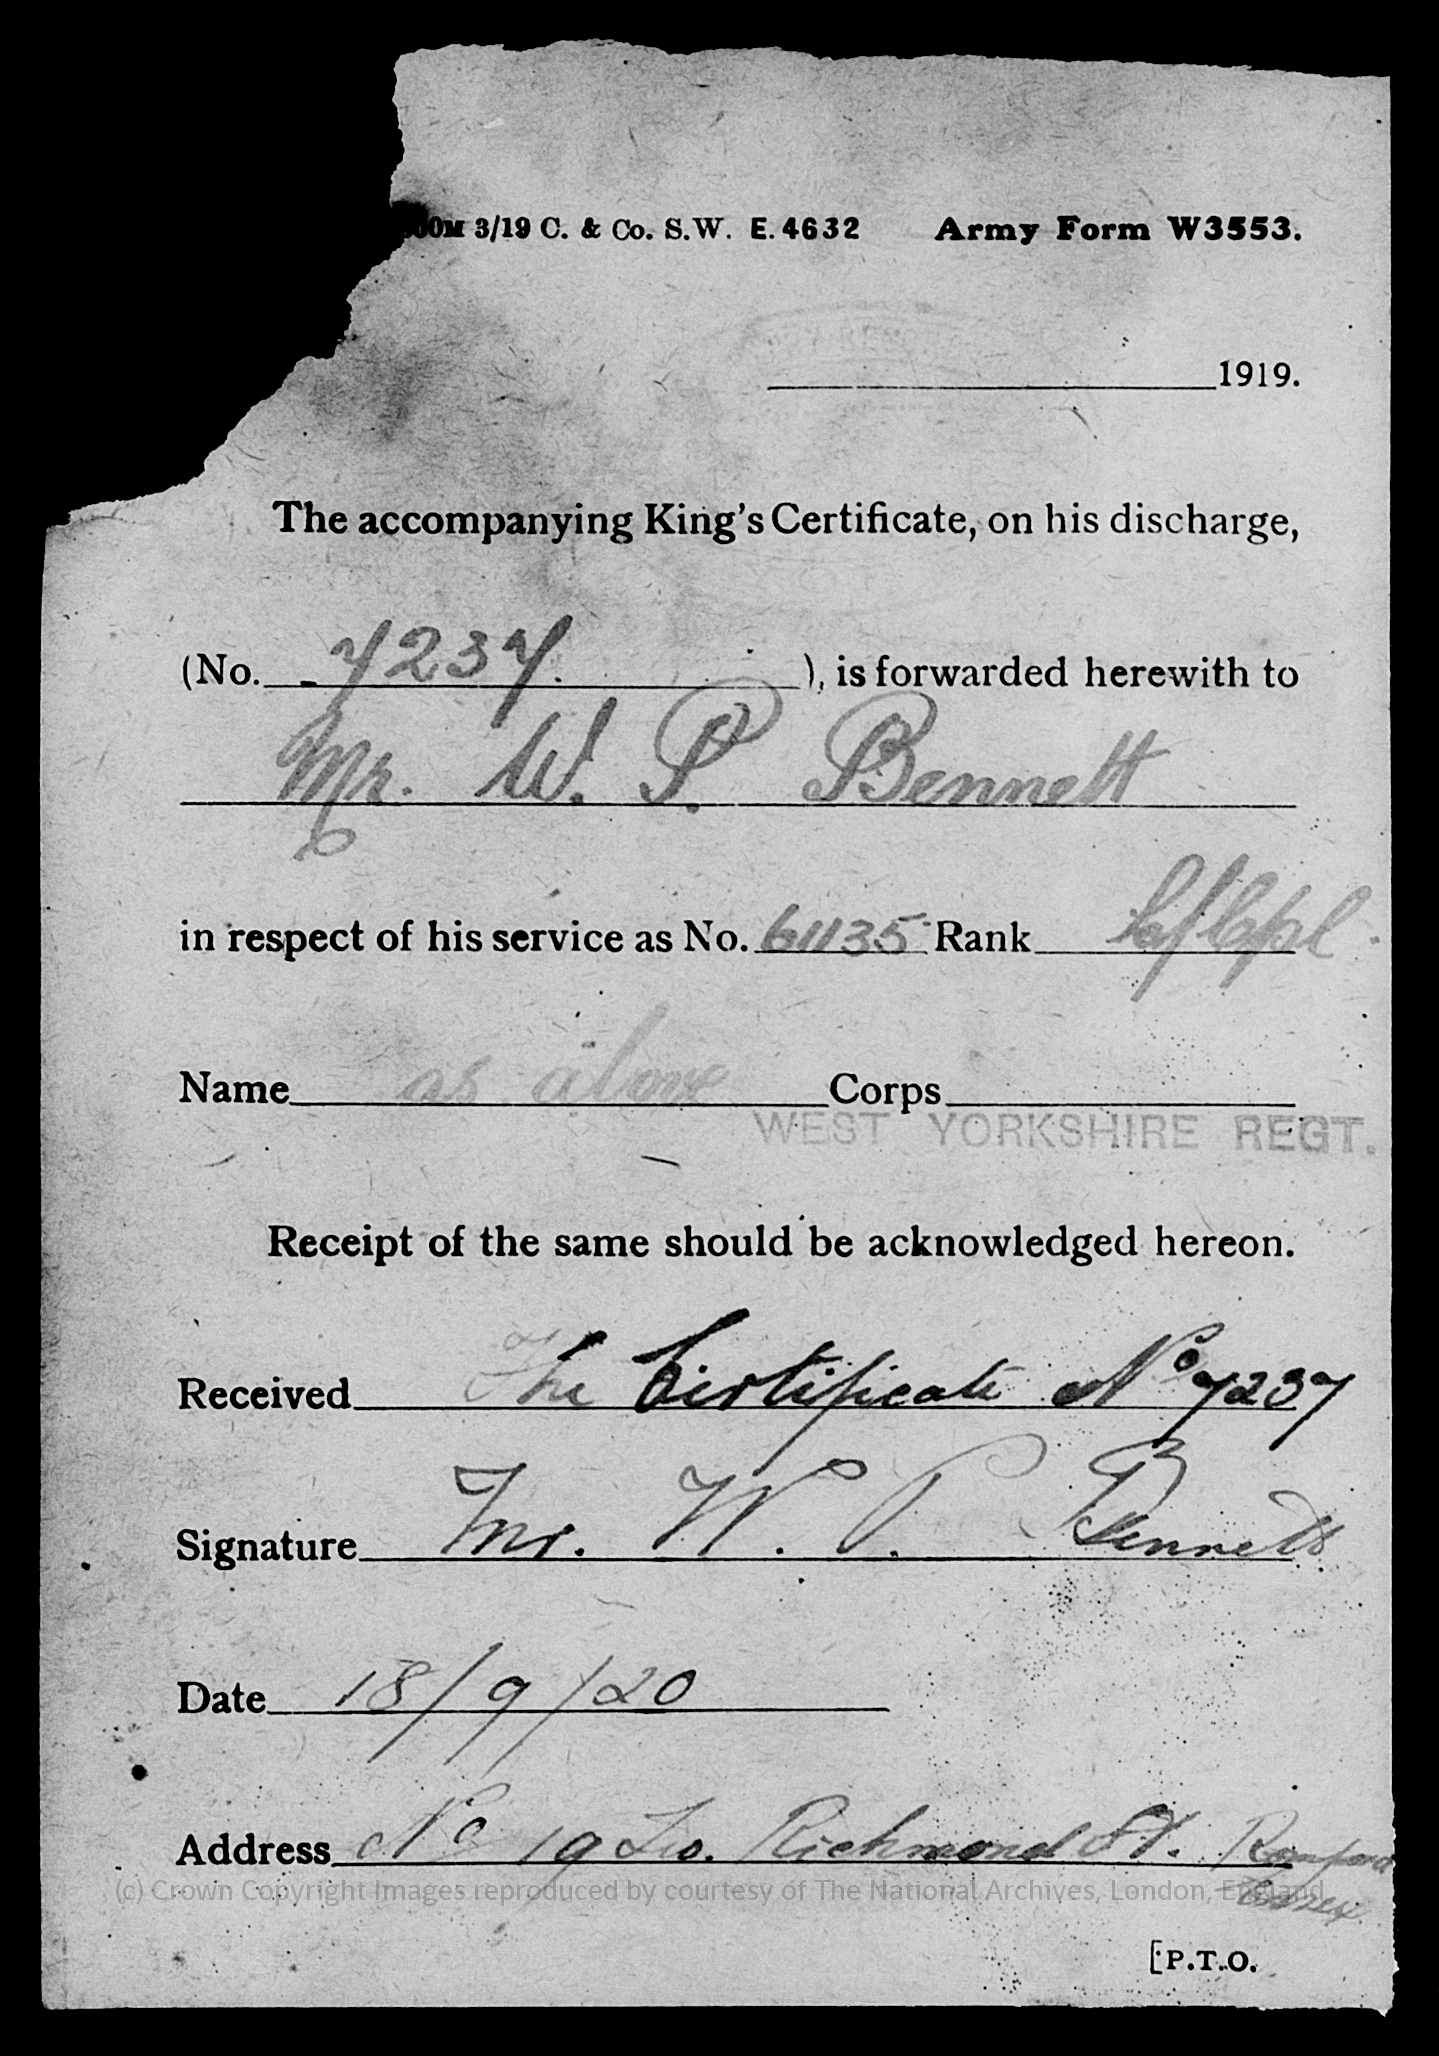 00M 3/19 C. & Co. S.W. E. 4632 Army Form W3553.
1919.
The accompanying King's Certificate, on his discharge,
(No. 7237. ), is forwarded herewith to
Mr. W. P. Bennett
in respect of his service as No. 61135 Rank L/Cpl.
Name as above Corps
WEST YORKSHIRE REGT.
Receipt of the same should be acknowledged hereon.
Received The Certificate No 7237
Signature Mr. W. P. Bennett
Date 18/9/20
Address No 19 Richmond St. Romford
(c) Crown Copyright Images reproduced by courtesy of The National Archives, London, England
Essex
[P.T.O.